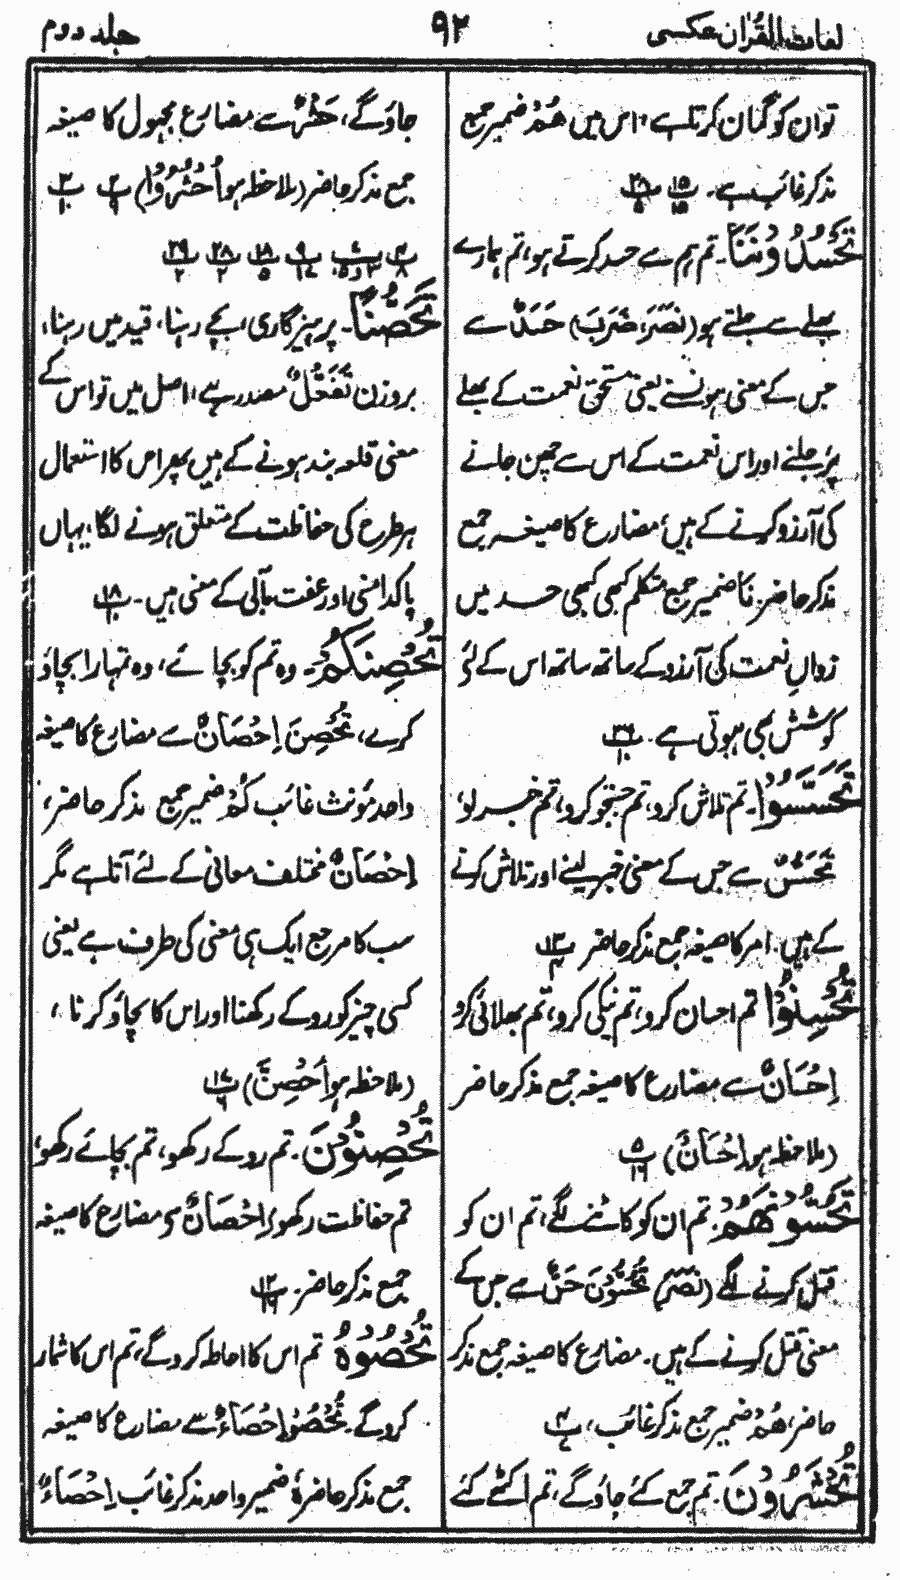 لغات القرآن عکسی
۹۲
جلد دوم
تو ان کو گمان کرتا ہے، اس میں ھُمْ ضمیر جمع
مذکر غائب ہے۔
تَحْسُدُوْنَنَا۔ تم ہم سے حسد کرتے ہو، تم ہمارے
بھلے سے جلتے ہو (نَصَرَ، ضَرَبَ) حَسَدٌ سے
جس کے معنی ہونے یعنی مستحق نعمت کے بھلے
پر جلنے اور اس نعمت کے اس سے چھن جانے
کی آرزو کرنے کے ہیں، مضارع کا صیغہ جمع
مذکر حاضر۔ نَا ضمیر جمع متکلم کبھی کبھی حسد میں
زوالِ نعمت کی آرزو کے ساتھ ساتھ اس کے لئے
کوشش بھی ہوتی ہے۔
تَحَسَّسُوْا۔ تم تلاش کرو، تم جستجو کرو، تم خبر لو،
تَحَسُّسٌ سے جس کے معنی خبر لینے اور تلاش کرنے
کے ہیں۔ امر کا صیغہ جمع مذکر حاضر
تُحْسِنُوْا تم احسان کرو، تم نیکی کرو، تم بھلائی کرو
اِحْسَانٌ سے مضارع کا صیغہ جمع مذکر حاضر
(ملاحظہ ہو اِحْسَانٌ)
تَحُسُّوْنَھُمْ۔ تم ان کو کاٹنے لگے، تم ان کو
قتل کرنے لگے (نَصَرَ) تَحُسُّوْنَ حَسٌّ سے جس کے
معنی قتل کرنے کے ہیں۔ مضارع کا صیغہ جمع مذکر
حاضر، ھُمْ ضمیر جمع مذکر غائب،
تُحْشَرُوْنَ۔ تم جمع کئے جاؤگے، تم اکٹھے کئے
جاؤگے، حَشْرٌ سے مضارع مجہول کا صیغہ
جمع مذکر حاضر (ملاحظہ ہو اُحْشُرُوْا)
تَحَصُّنًا۔ پرہیزگاری، بچے رہنا، قید میں رہنا،
بروزن تَفَعُّلٌ مصدر ہے، اصل میں تو اس کے
معنی قلعہ بند ہونے کے ہیں پھر اس کا استعمال
ہر طرح کی حفاظت کے متعلق ہونے لگا، یہاں
پاکدامنی اور عفت مآبی کے معنی ہیں۔
تُحْصِنَكُمْ۔ وہ تم کو بچائے، وہ تمہارا بچاؤ
کرے، تُحْصِنَ اِحْصَانٌ سے مضارع کا صیغہ
واحد مؤنث غائب كُمْ ضمیر جمع مذکر حاضر،
اِحْصَانٌ مختلف معانی کے لئے آتا ہے مگر
سب کا مرجع ایک ہی معنی کی طرف ہے یعنی
کسی چیز کو روکے رکھنا اور اس کا بچاؤ کرنا،
(ملاحظہ ہو اُحْصِنَّ)
تُحْصِنُوْنَ۔ تم روکے رکھو، تم بچائے رکھو،
تم حفاظت رکھو، اِحْصَانٌ سے مضارع کا صیغہ
جمع مذکر حاضر۔
تُحْصُوْهُ تم اس کا احاطہ کروگے، تم اس کا شمار
کروگے۔ تُحْصُوْ اِحْصَاءٌ سے مضارع کا صیغہ
جمع مذکر حاضر، هُ ضمیر واحد مذکر غائب اِحْصَاءٌ